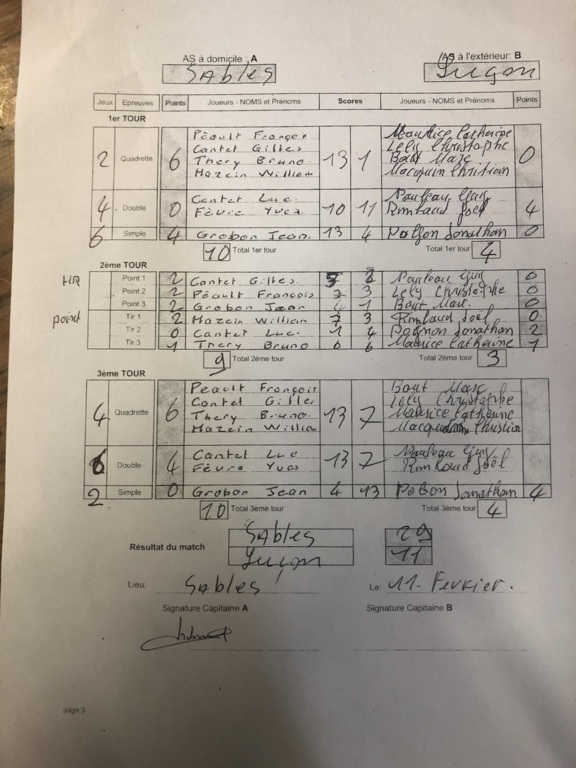 AS à domicile : A AS à l'extérieur: B
SAbles Luçon
Jeux Epreuves Points Joueurs - NOMS et Prénoms Scores Joueurs - NOMS et Prénoms Points
1er TOUR
Péault François Maurice Catherine
Cantet Gilles Lely Christophe
2 Quadrette 6 Thery Bruno 13 1 Bout Marc 0
Marzin William Macquin Christian
Cantet Luc Pauleau Guy
4 Double 0 Fèvre Yves 10 11 Rimbaud Joël 4
6 Simple 4 Grobon Jean 13 4 Jonathan 0
10 Total 1er tour Total 1er tour 4
2ème TOUR
Point 1 2 Cantet Gilles Pauleau Guy 0
Point 2 2 Péault François 3 Lely Christophe 0
point Point 3 2 Grobon Jean 1 Bout Marc 0
Tir 1 2 Marzin William 3 Rimbaud Joël 0
Tir 2 0 Cantet Luc 1 4 Jonathan 2
Tir 3 1 Thery Bruno 6 6 Maurice Catherine 1
9 Total 2ème tour Total 2ème tour 3
3ème TOUR
Péault François Bout Marc
Cantet Gilles Lely Christophe
4 Quadrette 6 Thery Bruno 13 7 Maurice Catherine
Marzin William Christian
Cantet Luc Pauleau Guy
6 Double 4 Fèvre Yves 13 7 Rimbaud Joël
2 Simple 0 Grobon Jean 4 13 Jonathan 4
10 Total 3ème tour Total 3ème tour 4
Résultat du match SAbles 29
Luçon 11
Lieu: SAbles Le: 11. Fevrier.
Signature Capitaine A Signature Capitaine B
page 3